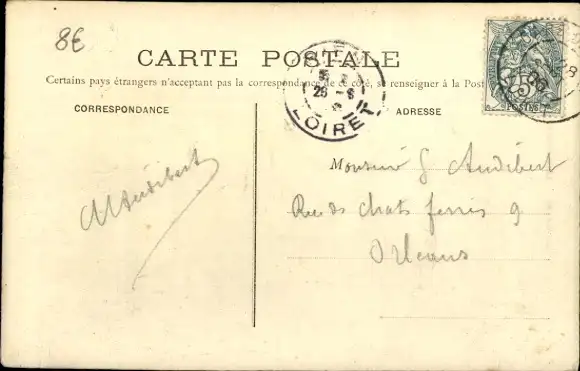 8€
CARTE POSTALE
Certains pays étrangers n'acceptant pas la correspondance de ce côté, se renseigner à la Post
CORRESPONDANCE
ADRESSE
25 -8
LOIRET
5
POSTES
Audibert
Monsieur G Audibert
Rue des chats ferrés 9
Orléans